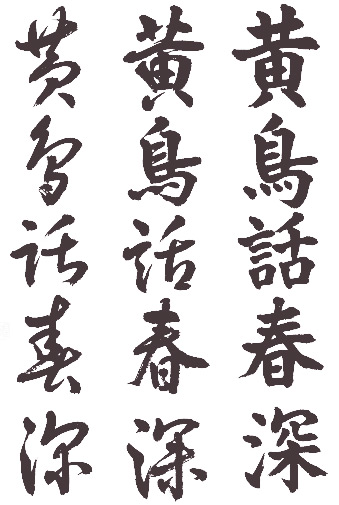 黄鳥話春深
黄鳥話春深
黄鳥話春深